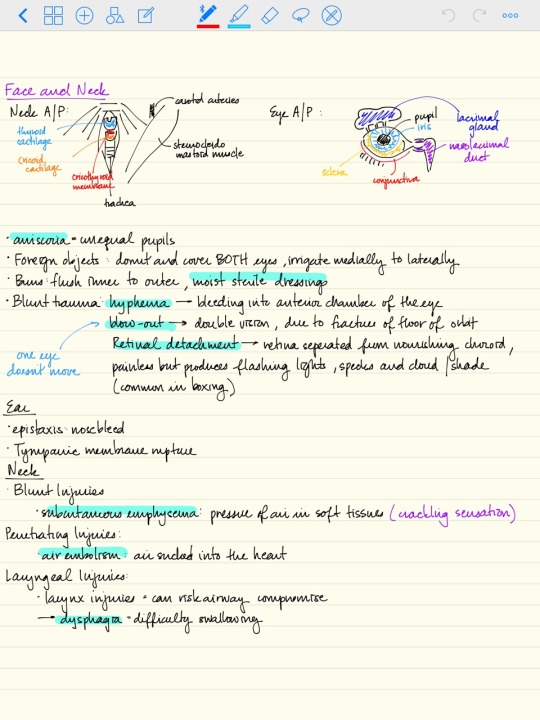 Face and Neck
Neck A/P:
carotid arteries
thyroid cartilage
cricoid cartilage
sternocleido mastoid muscle
cricothyroid membrane
trachea
Eye A/P :
pupil
iris
lacrimal gland
nasolacrimal duct
sclera
conjunctiva
· aniscoria = unequal pupils
· Foreign objects : donut and cover BOTH eyes, irrigate medially to laterally
· Burns: flush inner to outer, moist sterile dressings
· Blunt trauma: hyphema → bleeding into anterior chamber of the eye
blow-out → double vision, due to fracture of floor of orbit
one eye doesn't move
Retinal detachment → retina seperated from nourishing choroid,
painless but produces flashing lights, specks and cloud/shade
(common in boxing)
Ear
· epistaxis: nosebleed
· Tympanic membrane rupture
Neck
· Blunt Injuries
· subcutaneous emphysema: pressure of air in soft tissues (crackling sensation)
Penetrating Injuries:
· air embolism: air sucked into the heart
Laryngeal Injuries:
· larynx injuries = can risk airway compromise
→ dysphagia = difficulty swallowing